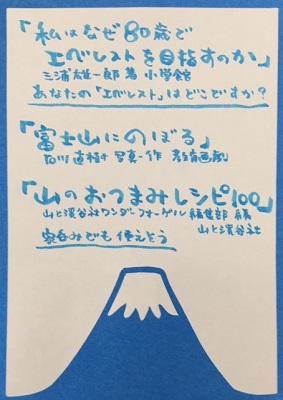 「私はなぜ80歳で
エベレストを目指すのか」
三浦雄一郎 著 小学館
あなたの「エベレスト」はどこですか?
「富士山にのぼる」
石川直樹 写真・作 教育画劇
「山のおつまみレシピ100」
山と溪谷社ワンダーフォーゲル編集部 編
山と溪谷社
家呑みでも使えそう